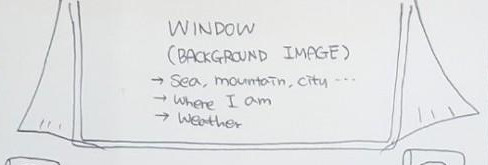 WINDOW
(BACKGROUND IMAGE)
→ Sea, mountain, city ...
→ Where I am
→ Weather